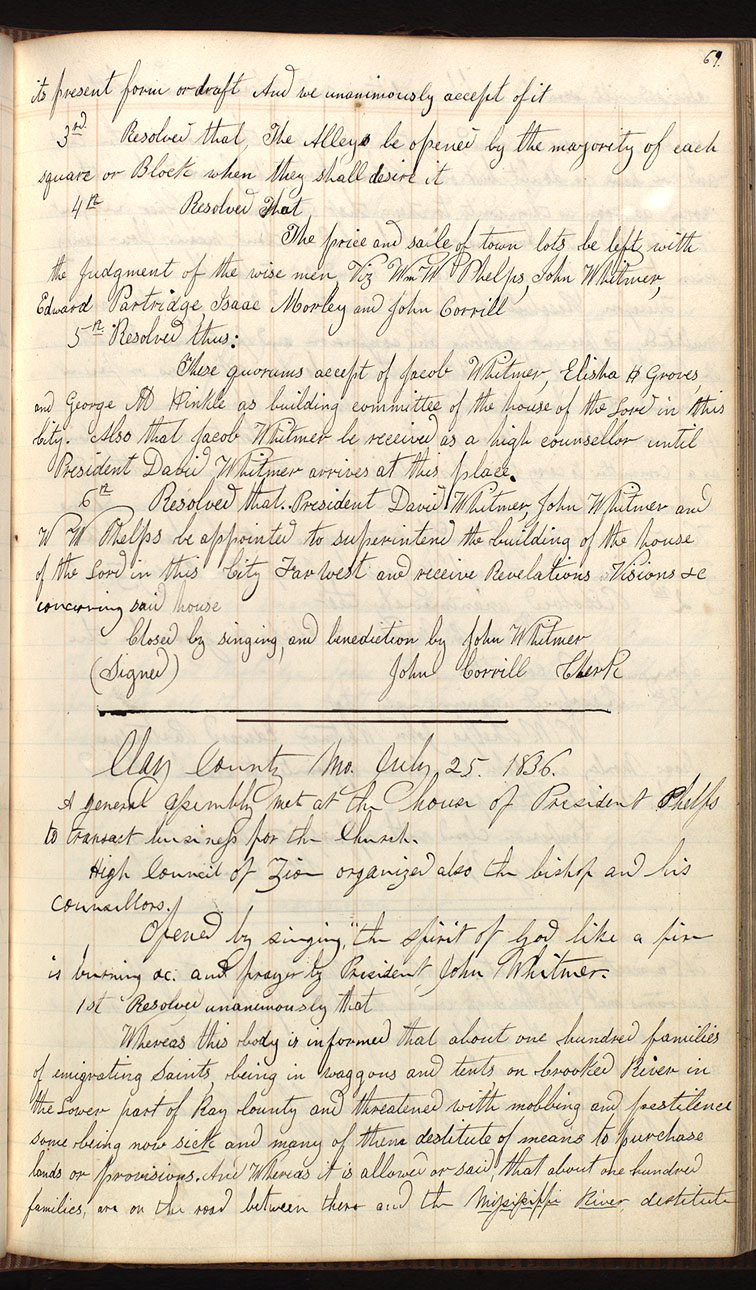 69.
its present form or draft And we unanimously accept of it
3rd Resolved that, The Alleys be opened by the majority of each
square or Block when they shall desire it
4th Resolved That
The price and saile of town lots be left with
the Judgment of the wise men Viz Wm W Phelps, John Whitmer,
Edward Partridge, Isaac Morley and John Corrill
5th Resolved thus:
These quorums accept of Jacob Whitmer, Elisha H Groves,
and George M Hinkle as building committee of the house of the Lord in this
City. Also that Jacob Whitmer be received as a high counsellor until
President David Whitmer arrives at this place.
6th Resolved that. President David Whitmer, John Whitmer and
W W Phelps be appointed to superintend the building of the house
of the Lord in this City Far west and receive Revelations Visions &c
concerning said house
Closed by singing, and benediction by John Whitmer
(Signed) John Corrill Clerk
Clay County Mo. July 25. 1836.
A general assembly met at the house of President Phelps
to transact business for the Church.
High Council of Zion organized also the bishop and his
counsellors.
Opened by singing, "the spirit of God like a fire
is burning &c. and prayer by President John Whitmer.
1st Resolved unanimously that
Whereas this body is informed that about one hundred families
of emigrating Saints, being in waggons and tents on Crooked River in
the Lower part of Ray County and threatened with mobbing and pestilence
some being now sick and many of them destitute of means to purchase
lands or provisions. And Whereas it is allowed or said, that about one hundred
families, are on the road between there and the Missisippi River, destitute